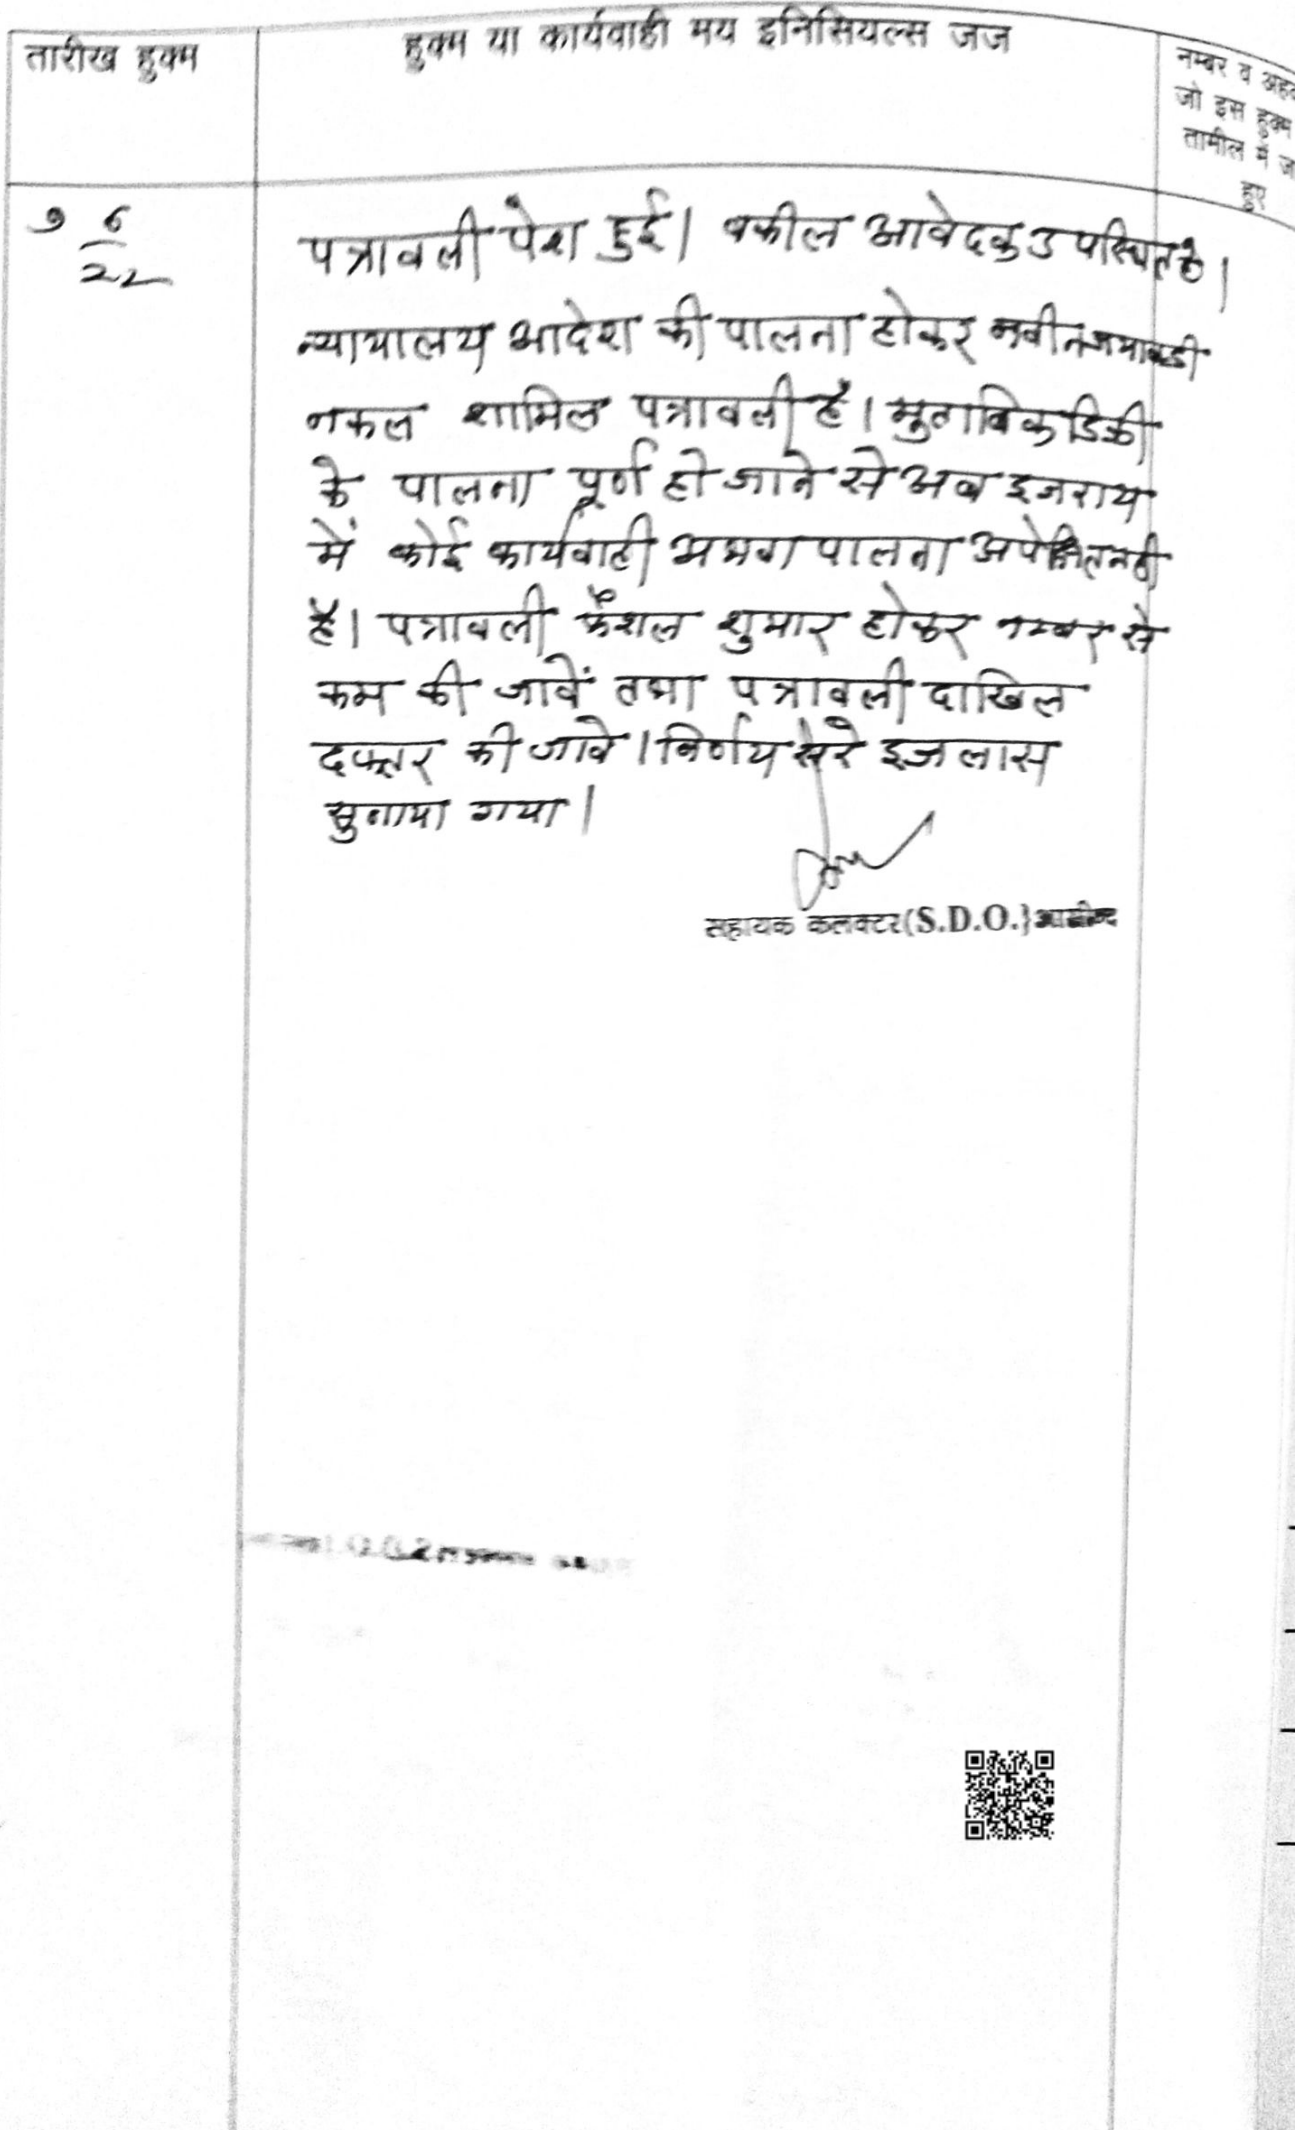 तारीख हुक्म
हुक्म या कार्यवाही मय इनिसियल्स जज
नम्बर व
जो इस हुक्म
तामील में
हुए
7 6
22
पत्रावली पेश हुई। वकील आवेदक उपस्थित है।
न्यायालय आदेश की पालना होकर नवीन जमाबंदी
नकल शामिल पत्रावली है। मुताबिक डिक्री
के पालना पूर्ण हो जाने से अब इजराय
में कोई कार्यवाही पालना अपेक्षित नही
है। पत्रावली फैशल शुमार होकर नम्बर से
कम की जावें तथा पत्रावली दाखिल
दफ्तर की जावे। निर्णय सरे इजलास
सुनाया गया।
सहायक कलक्टर(S.D.O.)